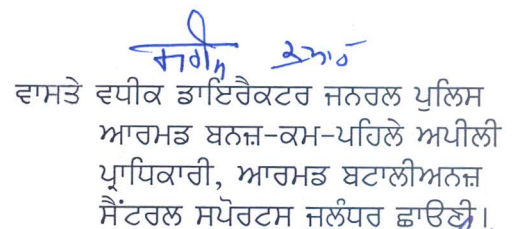 ਵਾਸਤੇ ਵਧੀਕ ਡਾਇਰੈਕਟਰ ਜਨਰਲ ਪੁਲਿਸ
ਆਰਮਡ ਬਨਜ਼-ਕਮ-ਪਹਿਲੇ ਅਪੀਲੀ
ਪ੍ਰਾਧਿਕਾਰੀ, ਆਰਮਡ ਬਟਾਲੀਅਨਜ਼
ਸੈਂਟਰਲ ਸਪੋਰਟਸ ਜਲੰਧਰ ਛਾਉਣੀ।